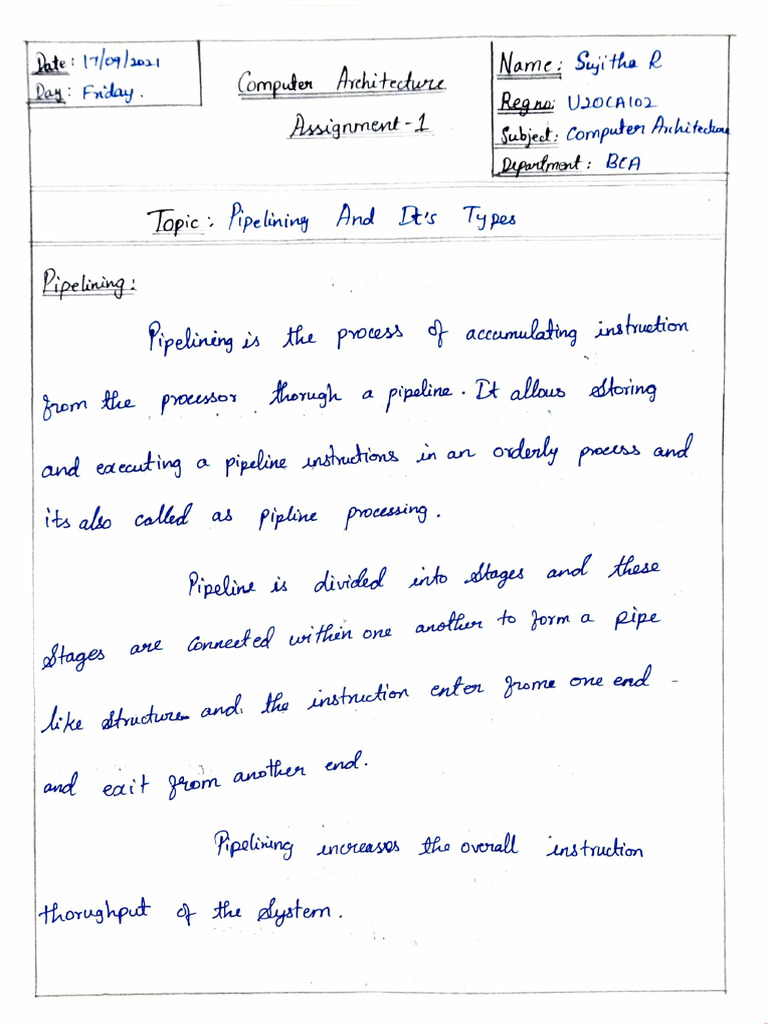 Date: 17/09/2021
Day: Friday.
Computer Architecture
Assignment-1
Name: Sujitha R
Reg no: U20CA102
Subject: Computer Architecture
Department: BCA
Topic: Pipelining And It's Types
Pipelining:
Pipelining is the process of accumulating instruction
from the processor thorugh a pipeline. It allows Storing
and executing a pipeline instructions in an orderly process and
its also called as pipline processing.
Pipeline is divided into Stages and these
Stages are connected within one another to form a pipe
like structure and the instruction enter frome one end
and exit from another end.
Pipelining increases the overall instruction
thorughput of the System.